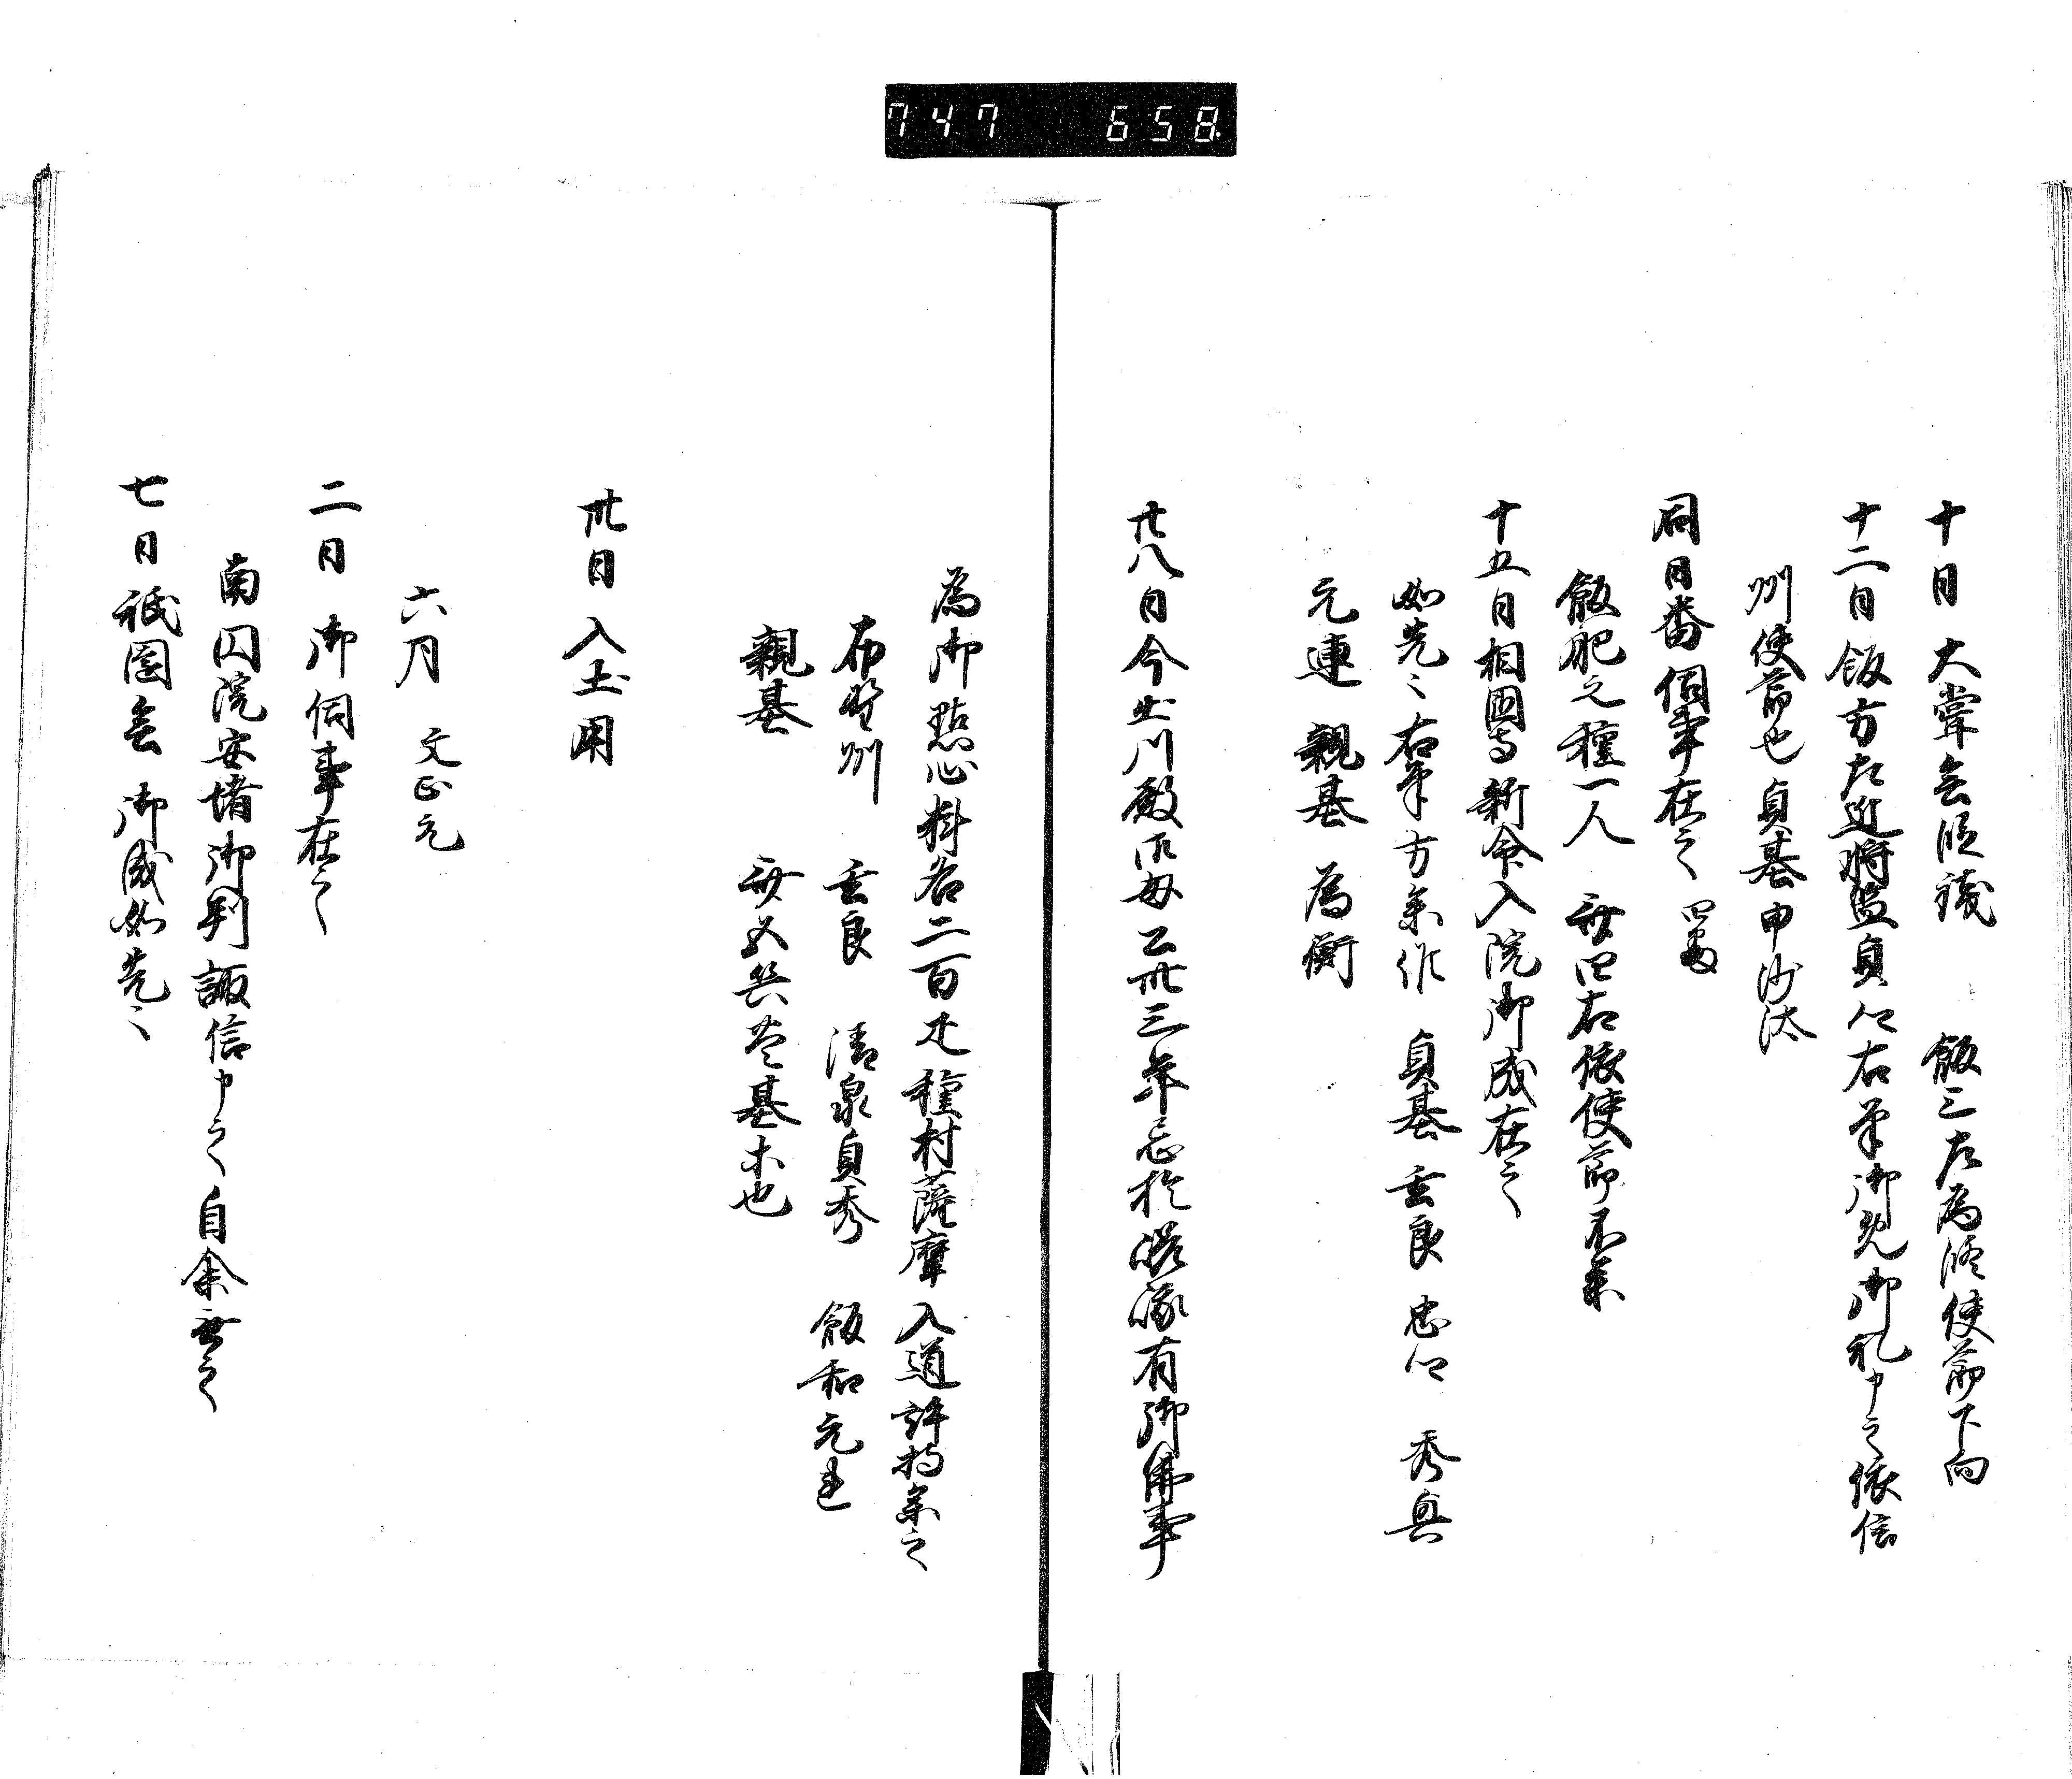 747 658
十日 大嘗会頭議 飯三左為修使節下向
十二日 飯方左近将監貞仁右筆御免御礼申之依信
州使節也 貞基申沙汰
同日番伺事在之 四番
飯肥之種一人 斎四右依使節不参
十五日相国寺新命入院御成在之
如先々右筆方参作 貞基 玄良 忠仁 秀興
元連 親基 為衡
廿八日今出川殿御母乙卅三年忌於 有御佛事
為御點心料各二百疋種村薩摩入道許持参之
布野州 玄良 清泉貞秀 飯和元連
親基 斎五兵 基木也
卅日入土用
六月 文正元
二日 御伺事在之
南囚院安堵御判諏信申之 自余無之
七日祇園会 御成如先々